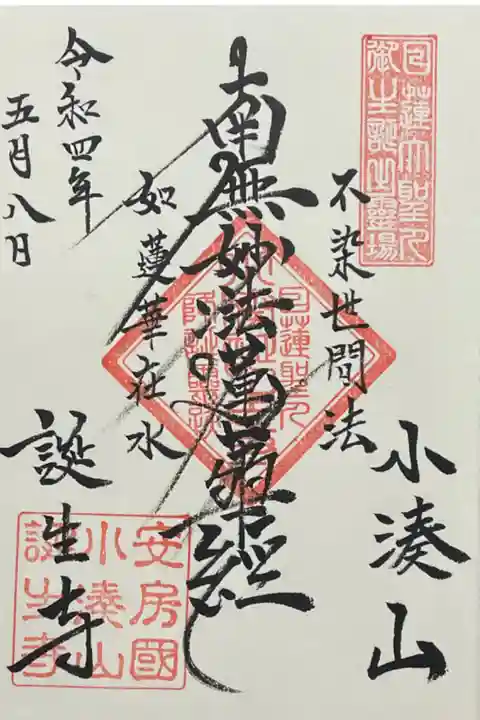 日蓮大聖人
御生誕之靈場
小湊山
不染世間法
南無妙法蓮華経
日蓮聖人
如蓮華在水
令和四年
五月八日
誕生寺
安房國
小湊山
誕生寺